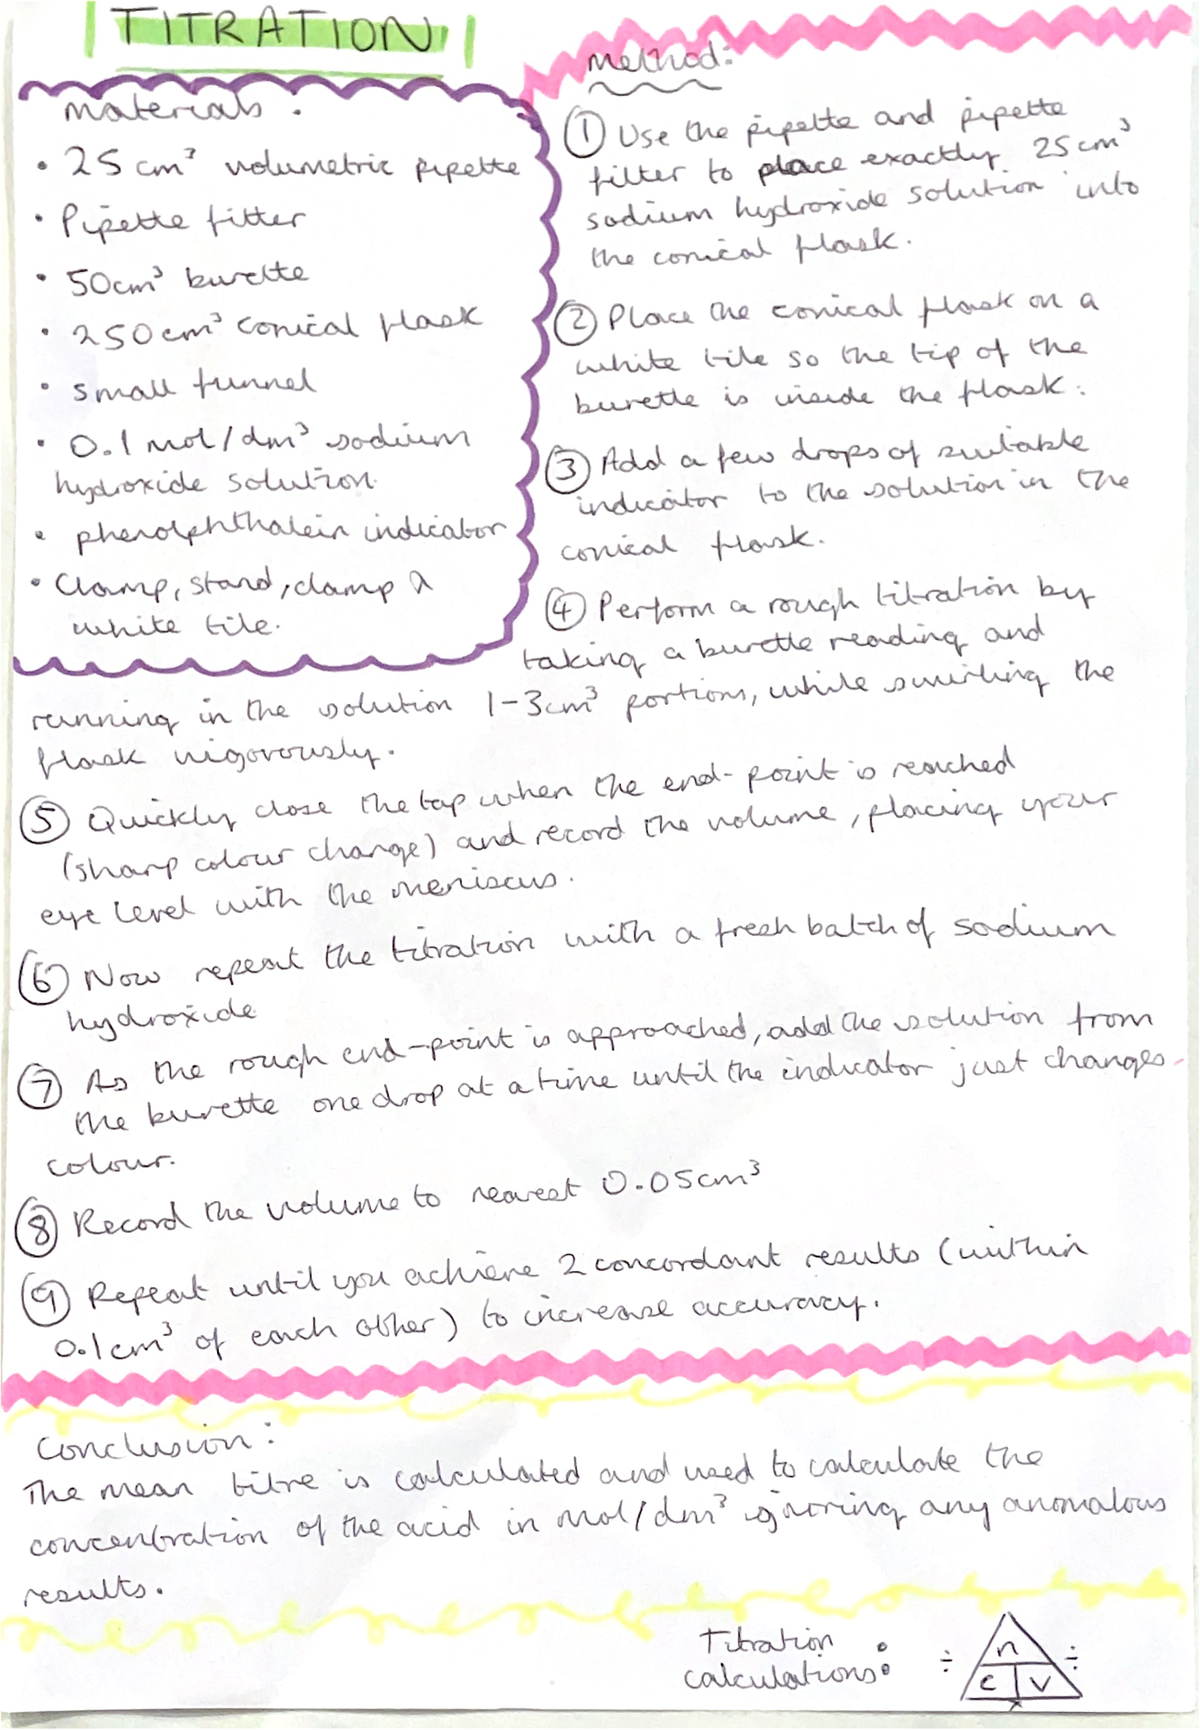 TITRATION
materials :
• 25 cm³ volumetric pipette
• Pipette filter
• 50cm³ burette
• 250cm³ conical flask
• small funnel
• 0.1 mol/dm³ sodium
hydroxide solution.
• phenolphthalein indicator
• Clamp, stand, clamp &
white tile.
method:
① Use the pipette and pipette
filter to place exactly 25cm³
sodium hydroxide solution into
the conical flask.
② Place the conical flask on a
white tile so the tip of the
burette is inside the flask.
③ Add a few drops of suitable
indicator to the solution in the
conical flask.
④ Perform a rough titration by
taking a burette reading and
running in the solution 1-3cm³ portions, while swirling the
flask vigorously.
⑤ Quickly close the tap when the end-point is reached
(sharp colour change) and record the volume, placing your
eye level with the meniscus.
⑥ Now repeat the titration with a fresh batch of sodium
hydroxide
⑦ As the rough end-point is approached, add the solution from
the burette one drop at a time until the indicator just changes
colour.
⑧ Record the volume to nearest 0.05cm³
⑨ Repeat until you achieve 2 concordant results (within
0.1cm³ of each other) to increase accuracy.
Conclusion:
The mean titre is calculated and used to calculate the
concentration of the acid in mol/dm³ ignoring any anomalous
results.
Titration
calculations:
÷ n ÷
c v
x